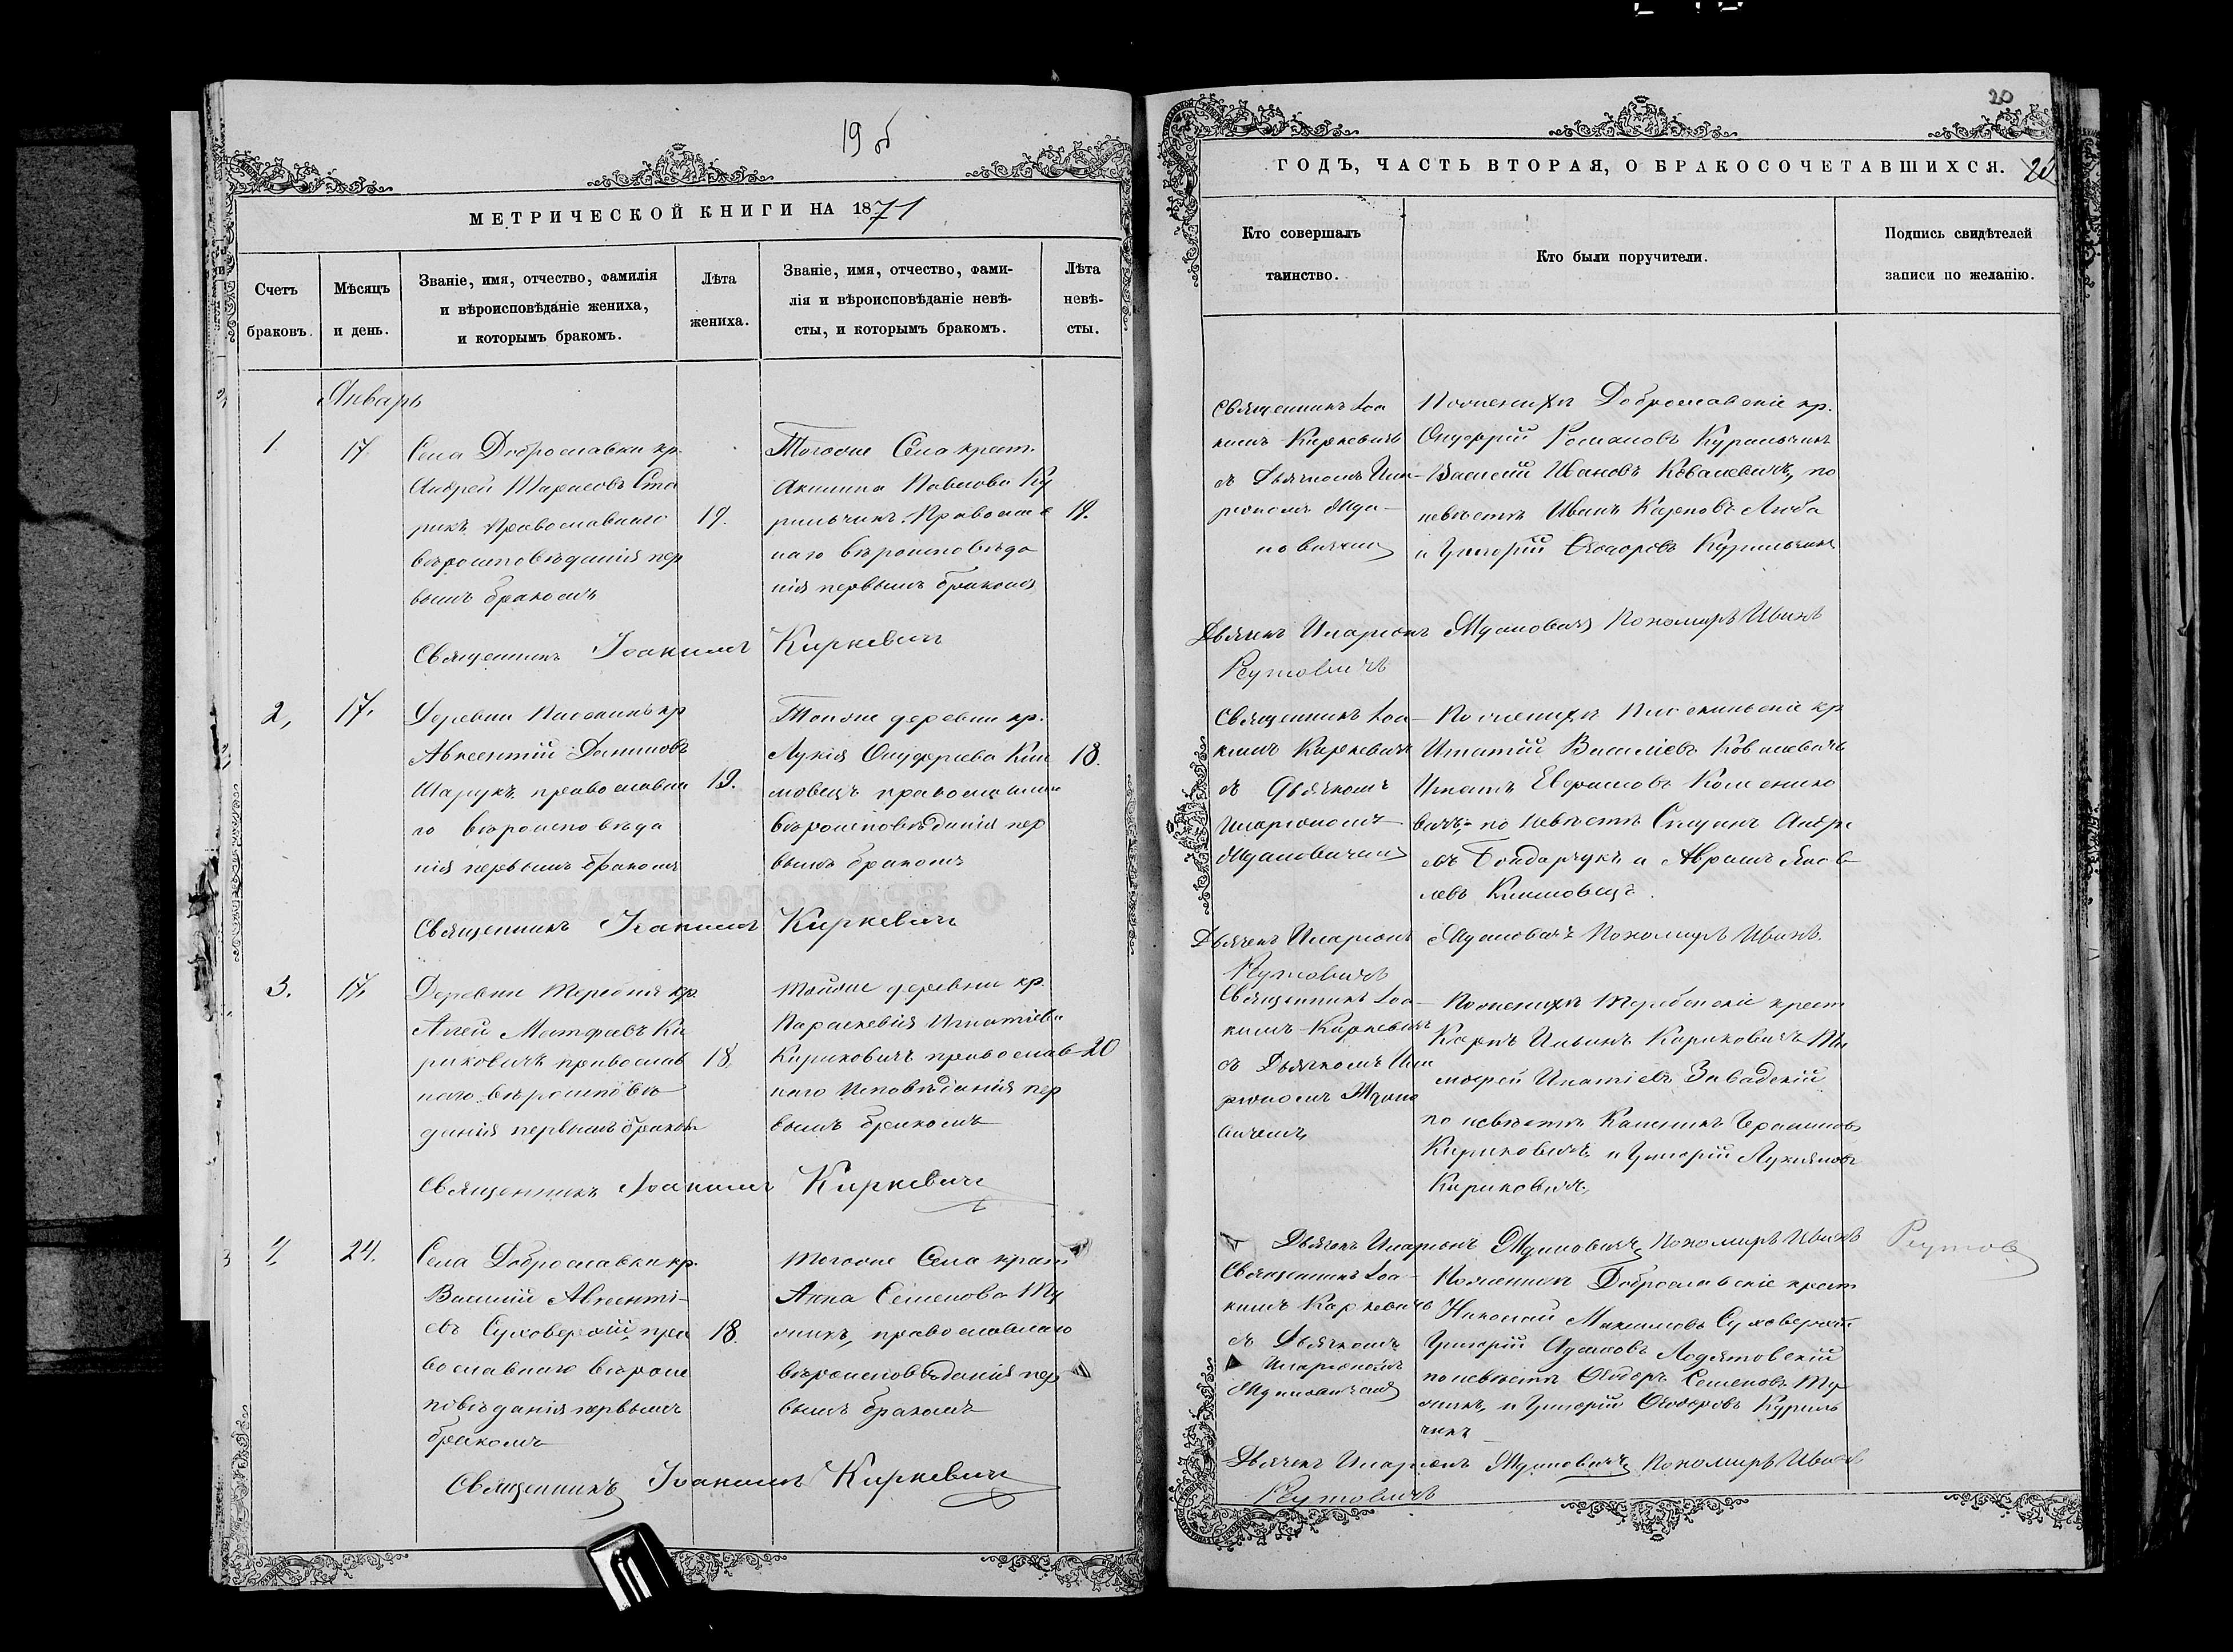 19 об
МЕТРИЧЕСКОЙ КНИГИ НА 1871
Счетъ браковъ.
Мѣсяцъ и день.
Званіе, имя, отчество, фамилія
и вѣроисповѣданіе жениха,
и которымъ бракомъ.
Лѣта жениха.
Званіе, имя, отчество, фами-
лія и вѣроисповѣданіе невѣ-
сты, и которымъ бракомъ.
Лѣта невѣ-
сты.
Январь
1
17
Села Доброславки кр.
Андрей Тарасовъ Ста
рикъ православнаго
вѣроисповѣданія пер
вымъ бракомъ
19.
Тогоже Села крест.
Акилина Павлова Ку
рильчикъ Православ
наго вѣроисповѣда
нія первымъ бракомъ
19.
Священникъ Іоакимъ Киркевичъ
2,
17.
Деревни кр
Авксентій Даниловъ
Шарукъ православна
го вѣроисповѣда
нія первымъ бракомъ
19.
Тойже деревни кр.
Лукія Онуфріева Кли
мовецъ православнаго
вѣроисповѣданія пер
вымъ бракомъ
18.
Священникъ Іоакимъ Киркевичъ
3.
17.
Деревни Теребня кр.
Матфеевъ Ки
риковичъ православ
наго вѣроисповѣ
данія первымъ бракомъ
18.
Тойже деревни кр.
Параскевія Игнатіева
Кириковичъ православ
наго исповѣданія пер
вымъ бракомъ
20
Священникъ Іоакимъ Киркевичъ
4,
24.
Села Доброславки кр.
Василій Авксенті-
евъ Суховерхій, пра
вославнаго вѣроис
повѣданія первымъ
бракомъ
18.
Тогоже Села крест
Анна Семенова
православнаго
вѣроисповѣданія пер
вымъ бракомъ
Священникъ Іоакимъ Киркевичъ
20
ГОДЪ, ЧАСТЬ ВТОРАЯ, О БРАКОСОЧЕТАВШИХСЯ.
20
Кто совершалъ
таинство.
Кто были поручители.
Подпись свидѣтелей
записи по желанію.
Священникъ Іоа
кимъ Киркевичъ
съ Дьячкомъ Ила-
ріономъ Жда-
новичемъ
По женихѣ Доброславскіе кр.
Онуфрій Романовъ Курильчикъ
Василій Ивановъ Ковалевичъ, по
невѣстѣ Иванъ Карповъ Люба
и Григорій Ѳеодоровъ Курильчикъ
Дьячекъ Иларіонъ Ждановичъ Пономарь Иванъ
Рутовичъ
Священникъ Іоа-
кимъ Киркевичъ
съ Дьячкомъ
Иларіономъ
Ждановичемъ
По женихѣ кр
Игнатій Василіевъ Ковалевичъ
Игнатъ Евфимовъ
вичъ, по невѣстѣ Андре
евъ Бондарчукъ и Аврамъ Яков
левъ Климовецъ.
Дьячекъ Иларіонъ Ждановичъ Пономарь Иванъ
Рутовичъ
Священникъ Іоа-
кимъ Киркевичъ
съ Дьячкомъ Ила
ріономъ Ждано
вичемъ
По женихѣ Теребенскіе крест
Карпъ Ильинъ Кириковичъ Ти
мофей Игнатіевъ Завадскій
по невѣстѣ
Кириковичъ и Григорій Лукьяновъ
Кириковичъ
Дьячекъ Иларіонъ Ждановичъ Пономарь Иванъ Рутов
Священникъ Іоа-
кимъ Киркевичъ
съ Дьячкомъ
Иларіономъ
Ждановичемъ
По женихѣ Доброславскіе крест
Николай Максимовъ Суховерхій
Григорій Адамовъ
по невѣстѣ Ѳеодоръ Семеновъ
и Григорій Ѳеодоровъ Куриль
чикъ
Дьячекъ Иларіонъ Ждановичъ Пономарь Иванъ
Рутовичъ